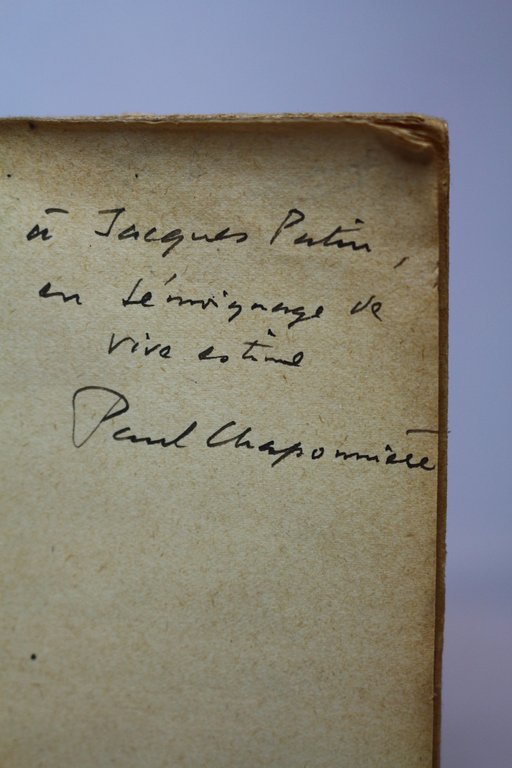 à Jacques Patin,
en témoignage de
vive estime
Paul Chaponnière